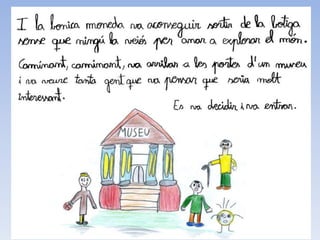 I la bonica moneda va aconseguir sortir de la botiga
sense que ningú la veiés per anar a explorar el món.
Caminant, caminant, va arribar a les portes d'un museu
i va veure tanta gent que va pensar que seria molt
interessant.
Es va decidir i va entrar.
MUSEU